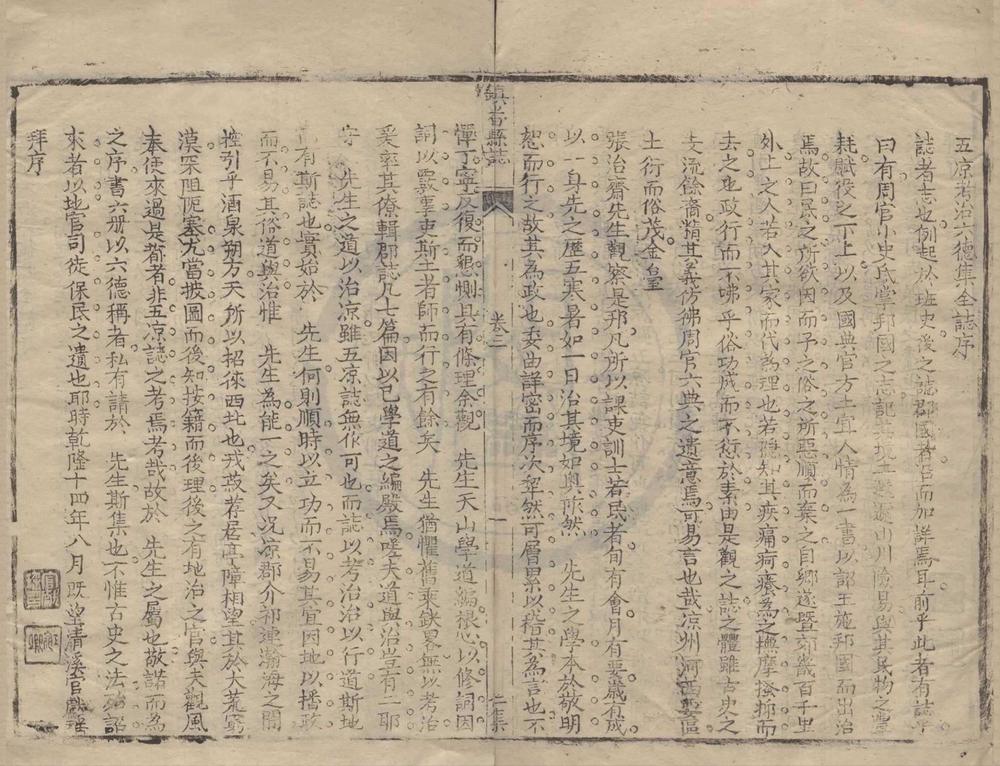 五凉考治六德集全誌序
誌者志也例起於班史後之誌郡國者沿而加詳焉耳前乎此者有誌乎
曰有周官小史氏掌邦國之志記其現土遐邇山川險易與其民物之豐
耗賦役之下上以及國典官方土宜人情為一書以詔王施邦國而出治
焉故曰民之所欲因而予之俗之所惡順而棄之自鄉遂暨郊畿百千里
外上之人若入其家而代為理也若隱知其疾痛疴癢為之撫摩搔抑而
去之也政行而不咈乎俗功成而不愆於素由是觀之誌之體雖古史之
支流餘裔爾其義仿彿周官六典之遺意焉可易言也哉凉州河西要區
土衍而俗茂金皇
張治齋先生觀察是邦凡所以課吏訓士若民者旬有會月有要歲有成
以一身先之歷五寒暑如一日治其境如奧阼然 先生之學本於敬明
恕而行之故其為政也委曲詳密而序次犂然可層累以稽其為言也不
鎮番縣誌 卷三 一 仁集
憚丁寧反復而懇惻具有條理余觀 先生天山學道編根心以修詞因
詞以覈事吏斯土者師而行之有餘矣 先生猶懼舊乘缺畧無以考治
爰率其僚輯郡誌凡七篇因以已學道之編殿焉嗟夫道與治豈有二耶
守 先生之道以治凉雖五凉誌無作可也而誌以考治治以行道斯地
有斯誌也實始於 先生何則順時以立功而不易其宜因地以播政
而不易其俗道與治惟 先生為能一之矣又况凉郡介祁連瀚海之間
控引乎酒泉朔方天所以招徠西北也戎葮荐居亭障相望其於大荒窮
漠罙阻阨塞尤當披圖而後知按籍而後理後之有地治之官與夫觀風
奉使來過是都者非五凉誌之考焉考哉故於 先生之屬也敬諾而為
之序書六册以六德稱者私有請於 先生斯集也不惟古史之法殆詔
來者以地官司徒保民之遺也耶時乾隆十四年八月既望清溪官獻瑤
拜序